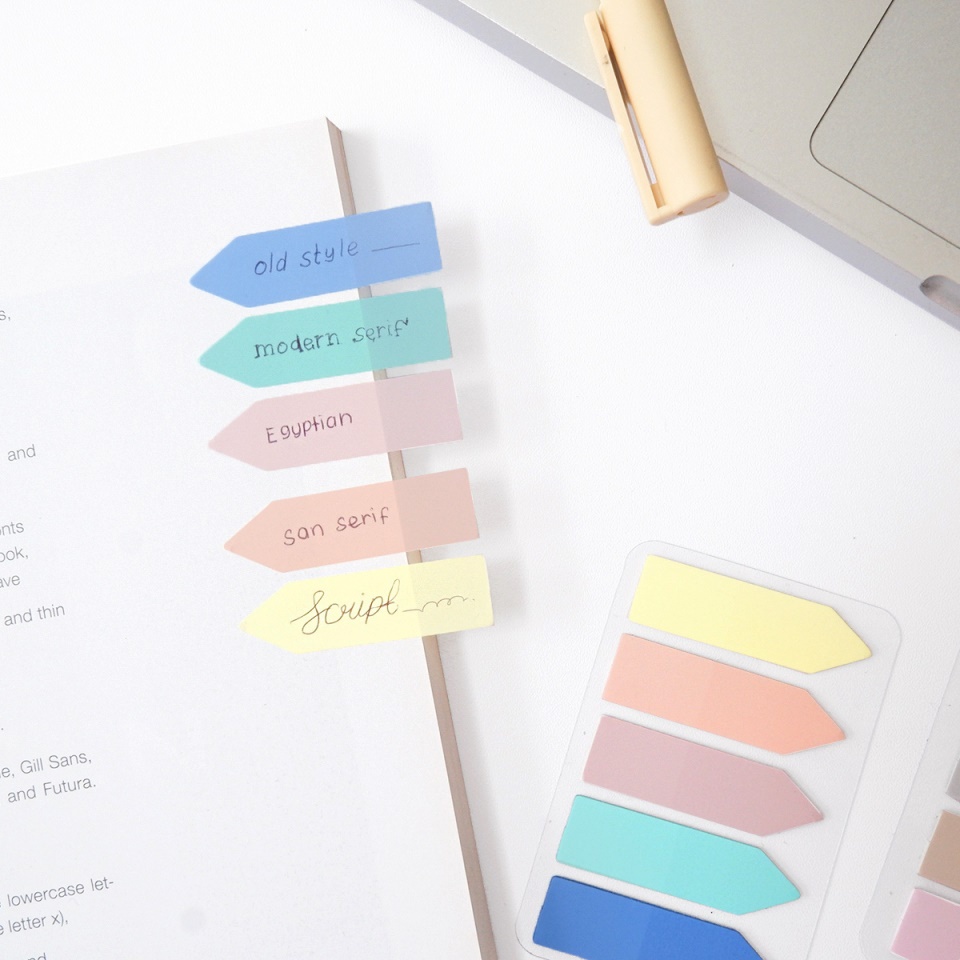 s,
old style
modern serif
and
Egyptian
nts
ook,
ave
san serif
and thin
Script
e, Gill Sans,
and Futura.
lowercase let-
e letter x),
and